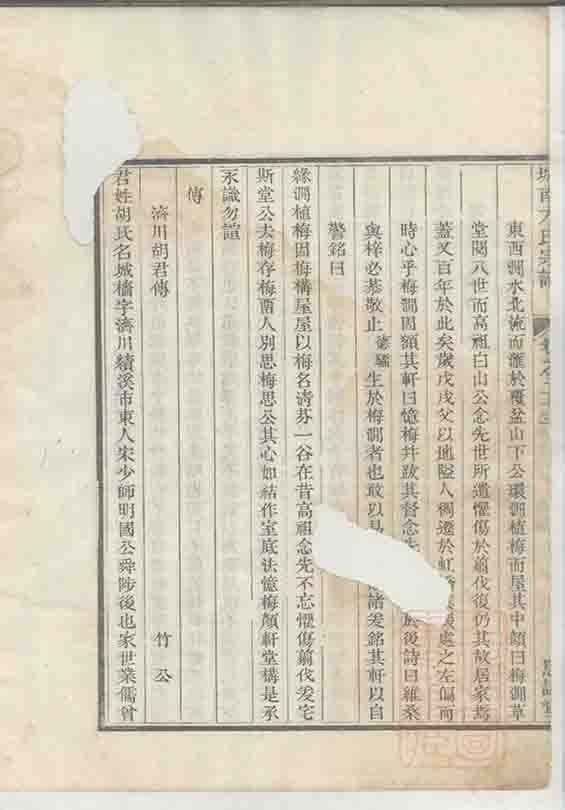 東西澗水北流而滙於覆盆山下公環澗植梅而屋其中顔曰梅澗草
堂閱八世而高祖白山公念先世所遺懼傷於翦伐復仍其故居家焉
蓋又百年於此矣歲戊戌父以地隘人稠遷於虹處之左偏而
時心乎梅澗因額其軒曰憶梅幷跋其督念先於後詩曰維桑
與梓必恭敬止德驕生於梅澗者也敢以諸爰銘其軒以自
警銘曰
緣澗植梅因梅構屋屋以梅名淸芬一谷在昔高祖念先不忘懼傷翦伐爰宅
斯堂公去梅存梅而人別思梅思公其心如結作室底法憶梅顔軒堂構是承
永識勿諠
傳
濟川胡君傳 竹公
君姓胡氏名城檣字濟川績溪市東人宋少師明國公舜陟後也家世業儒曾